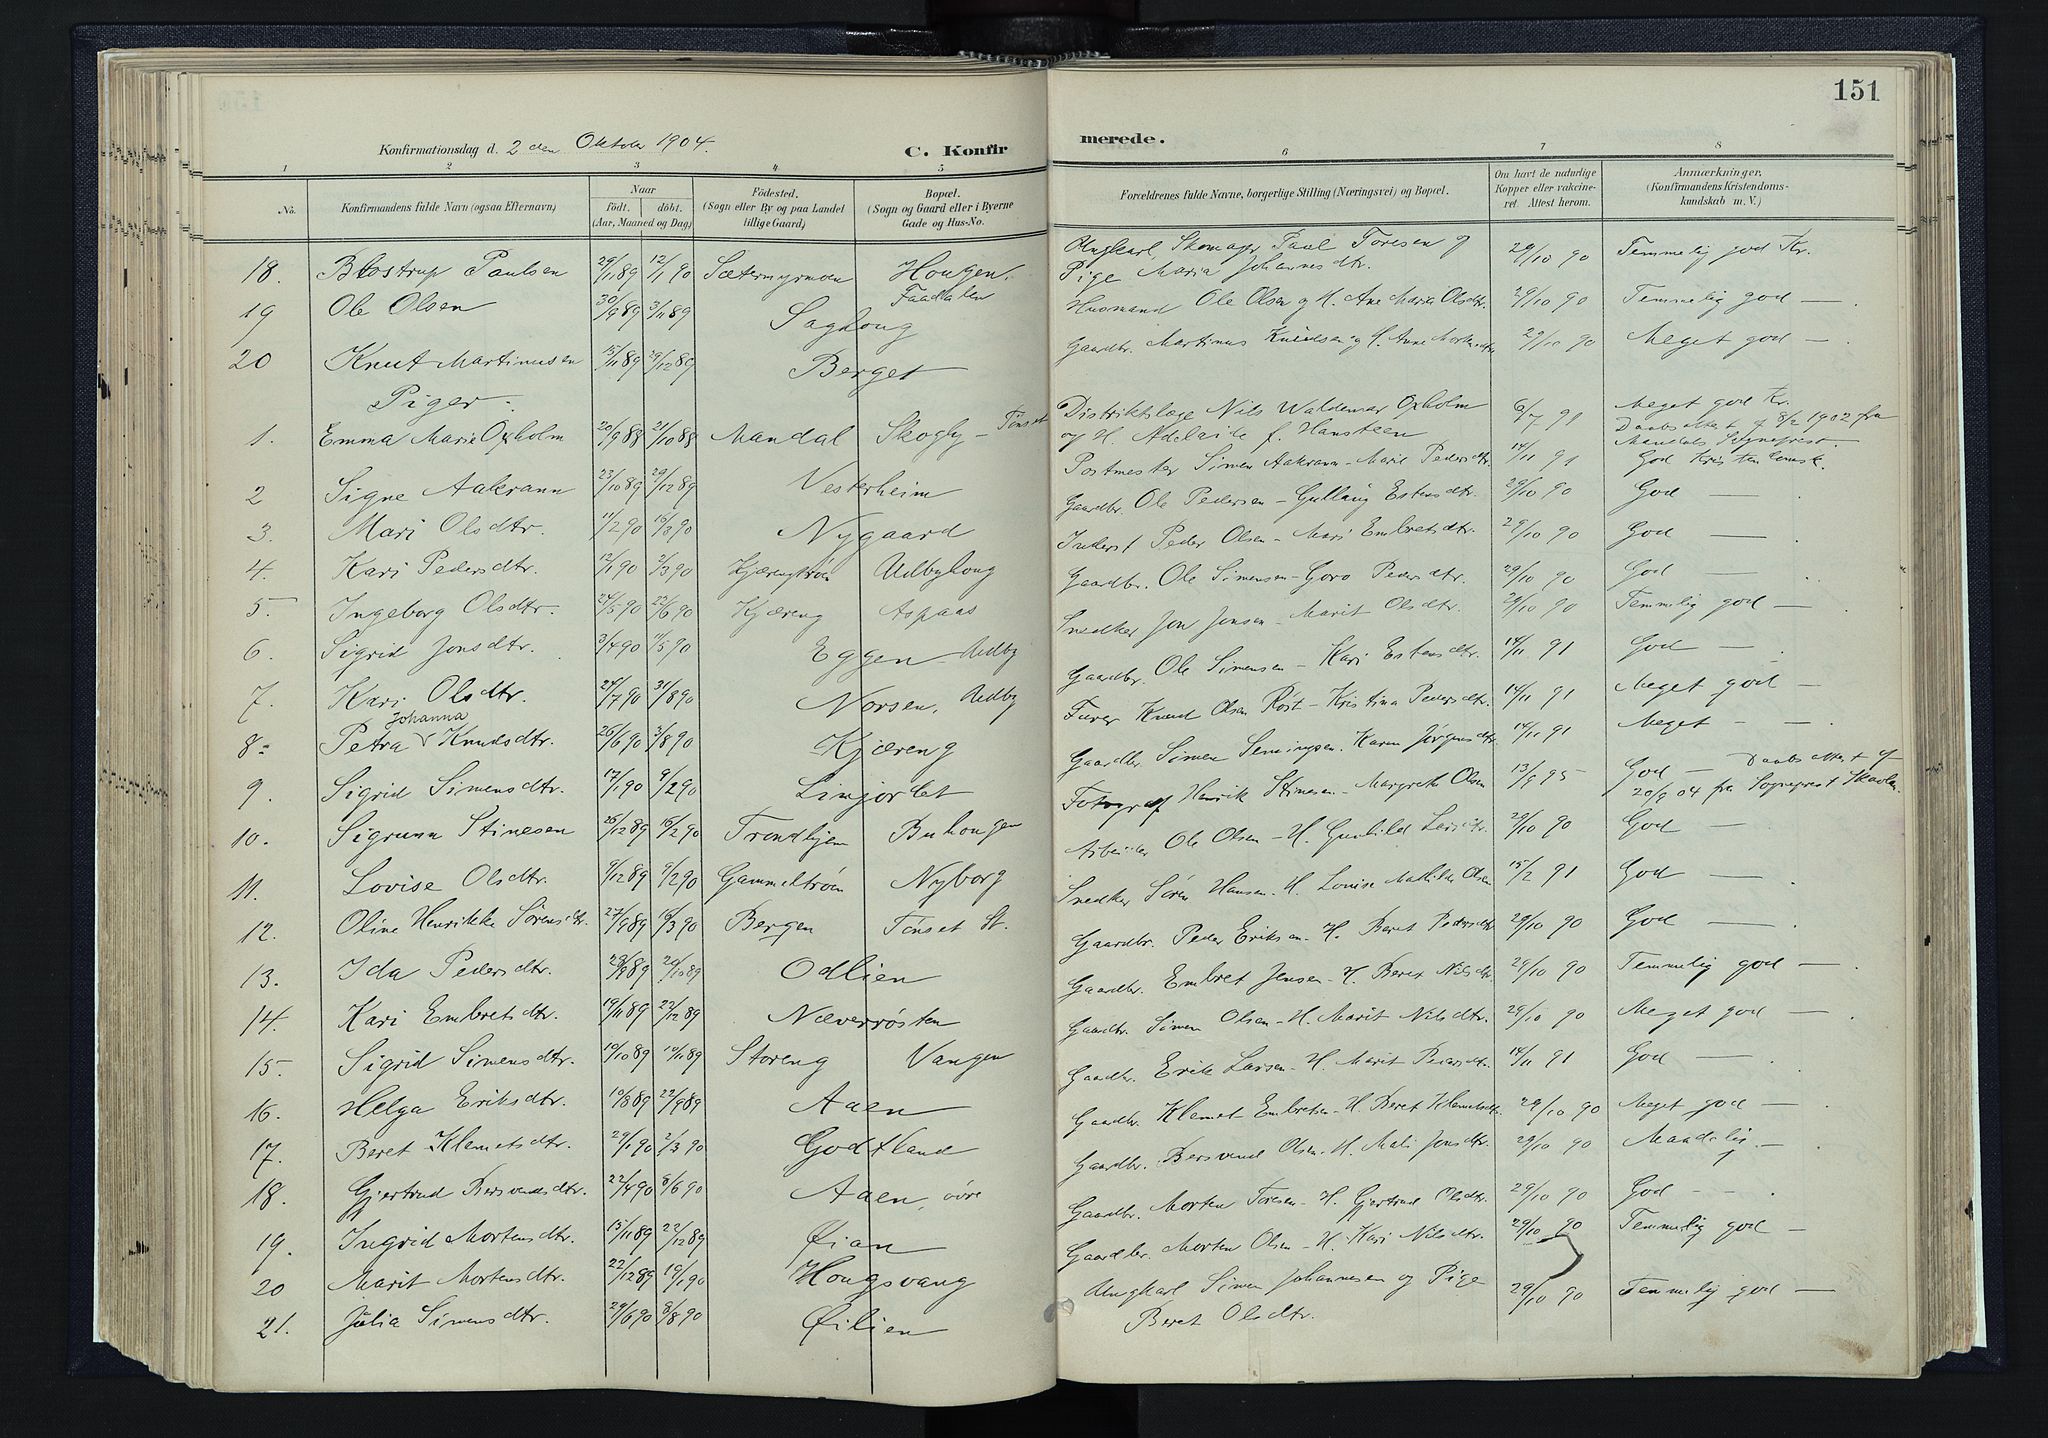 151
Konfirmationsdag d. 2 den Oktober 1904.
C. Konfir
merede.
1 2 3 4 5 6 7 8
No.
Konfirmandens fulde Navn (ogsaa Efternavn)
Naar
født. døbt.
(Aar, Maaned og Dag)
Födested.
(Sogn eller By og paa Landet
tillige Gaard)
Bopæl.
(Sogn og Gaard eller i Byerne
Gade og Hus-No.
Forældrenes fulde Navne, borgerlige Stilling (Næringsvei) og Bopæl.
Om havt de naturlige
Kopper eller vakcine-
ret. Attest herom.
Anmærkninger,
(Konfirmandens Kristendoms-
kundskab m. V.)
18. Paulsen 29/11 89 12/1 90 Sætermyrmoen Hougen, Ungkarl, Skomager Paul Toresen og 29/10 90 Temmelig god Kr.
Faadalen Pige Maria Johannesdtr.
19 Ole Olsen 30/9 89 3/11 89 Saghoug Husmand Ole Olsen og H. Ane Marie Olsdtr. 29/10 90 Temmelig god —
20 Knut Martinusen 15/11 89 29/12 89 Berget Gaardbr. Martinus Knudsen og H. Anne Mortensdtr 29/10 90 Meget god —
Piger.
1. Emma Marie Oxholm 20/9 88 21/10 88 Mandal Skogly - Tönset Distriktslæge Nils Waldemar Oxholm 6/7 91 Meget god Kr.
og H. Adelaide f. Hansteen Daabsattest af 8/2 1902 fra
Mandals Sogneprest.
2 Signe Aakrann 23/10 89 29/12 89 Vesterheim Postmester Simen Aakrann - Marit Pedersdtr. 14/11 91 God Kristendomsk.
3. Mari Olsdtr. 11/2 90 16/3 90 Nygaard Gaardbr. Ole Pedersen - Gullaug Estensdtr. 29/10 90 God —
4. Kari Pedersdtr. 12/1 90 2/3 90 Kjærengtrøen Udbyhoug Inderst Peder Olsen - Mari Embretsdtr. 29/10 90 God —
5. Ingeborg Olsdtr. 24/5 90 22/6 90 Kjæreng Aspaas Gaardbr. Ole Simensen - Goro Pedersdtr. 29/10 90 God —
6. Sigrid Jonsdtr. 3/4 90 11/5 90 Eggen Udby Snedker Jon Jensen - Marit Olsdtr. 29/10 90 Temmelig god —
7. Kari Olsdtr. 24/7 90 31/8 90 Norsen, Udby Gaardbr. Ole Simensen - Kari Estensdtr. 14/11 91 God —
Johanna
8. Petra Knudsdtr. 26/6 90 3/8 90 Kjæreng Furer Knud Olsen Røst - Kristina Pedersdtr. 14/11 91 Meget god —
9. Sigrid Simensdtr. 17/1 90 9/2 90 Linjordet Gaardbr Simen Karen Jørgensdtr. 14/11 91 Meget - -
10. Sigrunn Stinesen 26/12 89 16/2 90 Trondhjem Buhougen Fotograf Henrik Stinesen - Margrethe Olsen 13/9 95 God — Daabsattest af
20/9 04 fra Sogneprest
11. Lovise Olsdtr. 9/12 89 9/2 90 Gammeltrøen Nyborg Arbeider Ole Olsen - H. Gunhild Larsdtr. 29/10 90 God —
12. Oline Henrikke Sørensdtr. 27/9 89 16/3 90 Bergen Tønset St. Snedker Søren Hansen. H. Lovise Mathilde Olsen 15/2 91 God —
13. Ida Pedersdtr. 29/9 89 20/10 89 Odlien Gaardbr. Peder Eriksen - H. Beret Pedersdtr 29/10 90 God —
14. Kari Embretsdtr. 19/11 89 22/12 89 Næverrøsten Gaardbr. Embret Jensen - H. Beret Nilsdtr. 29/10 90 Temmelig god —
15. Sigrid Simensdtr. 19/10 89 10/11 89 Storeng Vangen Gaardbr. Simen Olsen - H. Marit Nilsdtr. 29/10 90 Meget god —
16. Helga Eriksdtr. 10/8 89 22/9 89 Aaen Gaardbr. Erik Larsen - H. Marit Pedersdtr 14/11 91 God —
17. Beret Klemetsdtr. 29/1 90 2/3 90 Godtland Gaardbr. Klemet Embretsen - H. Beret Klemetsdtr. 29/10 90 Meget god —
18. Gjertrud Bersvendsdtr. 22/4 90 8/6 90 Aaen, övre Gaardbr. Bersvend Olsen. H. Mali Jonsdtr. 29/10 90 Maadelig —
19. Ingrid Mortensdtr. 15/11 89 22/12 89 Øian Gaardbr. Morten Toresen - H. Gjertrud Olsdtr. 29/10 90 God - -
20 Marit Mortensdtr. 22/12 89 19/1 90 Hougsvang Gaardbr. Morten Olsen - H. Kari Nilsdtr. 29/10 90 Temmelig god —
21. Julia Simensdtr. 29/6 90 8/8 90 Øilien Ungkarl Simen Johannesen og Pige 29/10 90 Temmelig god —
Beret Olsdtr.